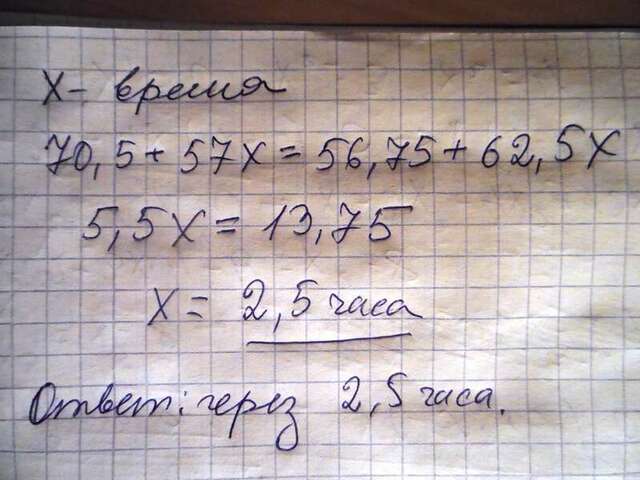 X - время
70,5 + 57X = 56,75 + 62,5X
5,5X = 13,75
X = 2,5 часа
Ответ: через 2,5 часа.